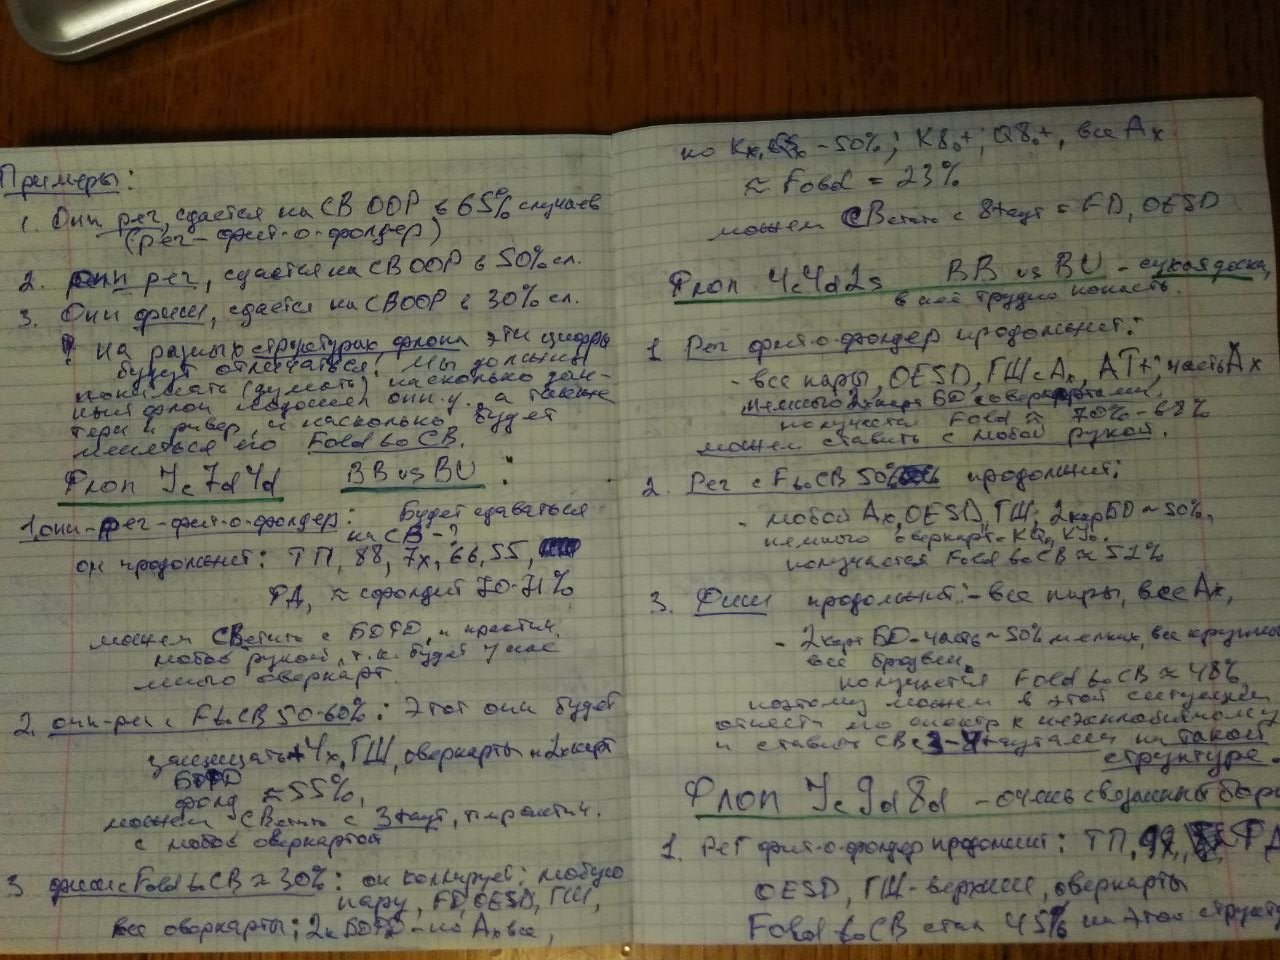 Примеры:
1. Опп рег, сдается на CB OOP в 65% случаев
(рег-фит-о-фолдер)
2. опп рег, сдается на CB OOP в 50% сл.
3. Опп фиш, сдается на CB OOP в 30% сл.
! На разных структурах флопа эти цифры
будут отличаться. Мы должны
понимать (думать) насколько дан-
ный флоп подошел опп.у, а также
терн и ривер, и насколько будет
меняться его Fold to CB.
Флоп Jc7d4d BB vs BU:
1. опп-рег-фит-о-фолдер: Будет сдаваться
на CB-?
он продолжит: ТП, 88, 7x, 66, 55,
ФД, ≈ сфолдит 70-71%
можем CBетить с БДФД, и практич.
любой рукой, т.к. будет у нас
много оверкарт.
2. опп-рег с FtoCB 50-60%: Этот опп будет
защищать +4x, ГШ, оверкарты и 2хкарт
БДФД
фолд ≈55%,
можем CBетить с 3+аут, т.е. практич.
с любой оверкартой
3 фиш с Fold to CB ≈ 30%: он коллирует: любую
пару, FD, OESD, ГШ,
все оверкарты; 2к БДФД - но Ax все,
но Kx, Qx - 50%; K8o+, Q8o+, все Ax
≈ Fold = 23%
можем CBетить с 8+аут = FD, OESD
Флоп 4c4d2s BB vs BU - сухая доска,
в неё трудно попасть.
1 Рег фит-о-фолдер продолжит:
- все пары, OESD, ГШ с Ax, AT+, часть Ax
немного 2хкарт БД с оверкартами,
получается Fold ≈ 70%-68%
можем ставить с любой рукой.
2. Рег с FtoCB 50% продолжит:
- любой Ax, OESD, ГШ, 2карБД ~ 50%,
немного оверкарт - KQo, KJo.
получается Fold to CB ≈ 52%
3. Фиш продолжит: - все пары, все Ax,
- 2карт БД-часть ~ 50% мелких, все крупные
все бродвеи.
получается Fold to CB ≈ 48%,
поэтому можем в этой ситуации
отнести его спектр к неэластичному
и ставить CB с 3-4+аутами на такой
структуре.
Флоп Jc9d8d - очень связанный борд
1. Рег фит-о-фолдер продолжит: ТП, 9x, ФД
OESD, ГШ-верхние, оверкарты
Fold to CB стал 45% на этой структ